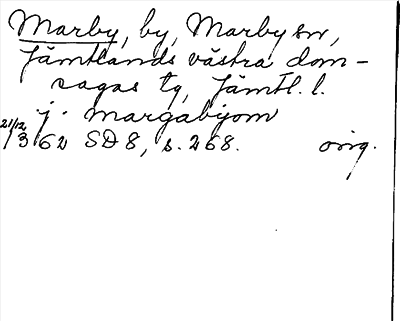 Marby, by, Marby sn,
Jämtlands västra dom-
sagas tg, Jämtl. l.
j. margabyom
21/12 1362 SD 8, s. 268. orig.